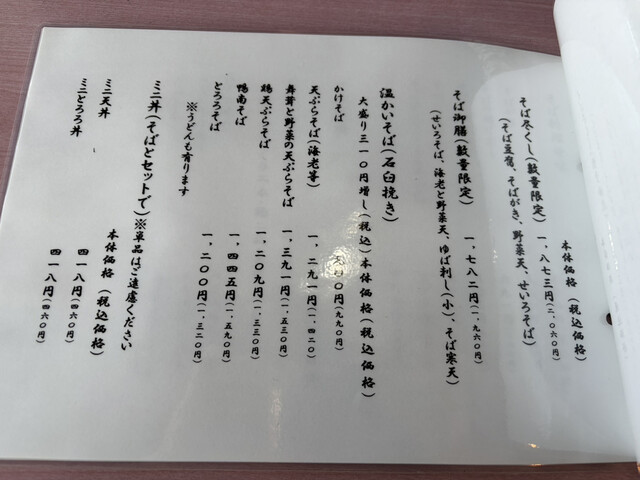 本体価格（税込価格）
そば尽くし（数量限定）一、八七三円（二、〇六〇円）
（そば豆腐、そばがき、野菜天、せいろそば）
そば御膳（数量限定）一、七八二円（一、九六〇円）
（せいろそば、海老と野菜天、ゆば刺し（小）、そば寒天）
温かいそば（石臼挽き）
大盛り三一〇円増し（税込）本体価格（税込価格）
かけそば 九〇〇円（九九〇円）
天ぷらそば（海老等）一、二九一円（一、四二〇）
舞茸と野菜の天ぷらそば 一、三九一円（一、五三〇円）
鶏天ぷらそば 一、二〇九円（一、三三〇円）
鴨南そば 一、四四五円（一、五九〇円）
とろろそば 一、二〇〇円（一、三二〇円）
※うどんも有ります
ミニ丼（そばとセットで）※単品はご遠慮ください
本体価格（税込価格）
ミニ天丼 四一八円（四六〇円）
ミニとろろ丼 四一八円（四六〇円）